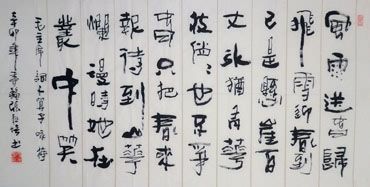 風雨送春歸
飛雪迎春到
已是懸崖百
丈冰猶有華
枝俏〻也不爭
春只把春來
報待到山華
爛漫時她在
叢中笑
毛主席詞卜算子詠梅
辛卯年